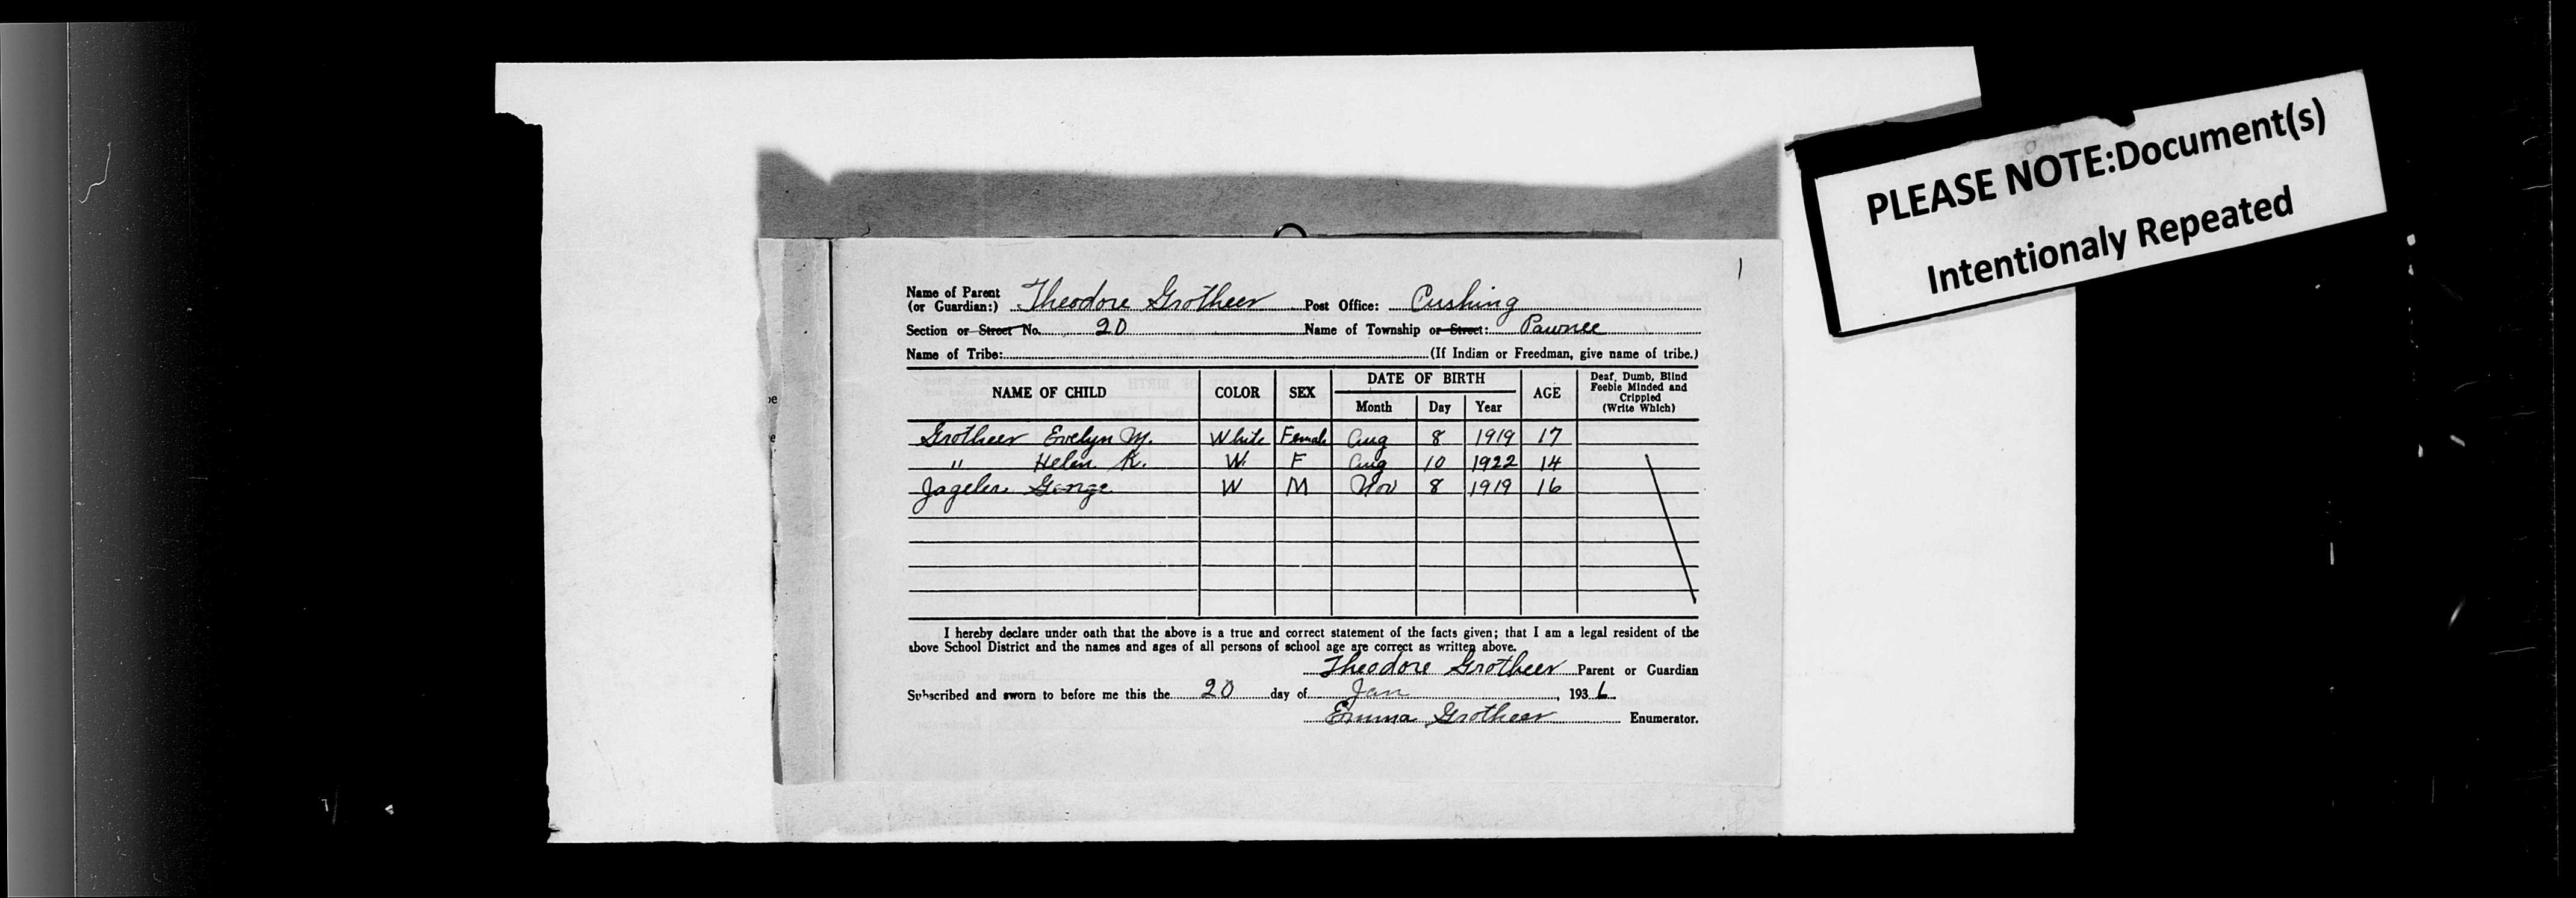 PLEASE NOTE:Document(s)
Intentionaly Repeated
1
Name of Parent
(or Guardian:) Theodore Grotheer Post Office: Cushing
Section or Street No. 20 Name of Township or Street: Pawnee
Name of Tribe: (If Indian or Freedman, give name of tribe.)
NAME OF CHILD COLOR SEX DATE OF BIRTH AGE Deaf, Dumb, Blind
Feeble Minded and
Crippled
(Write Which)
Month Day Year
Grotheer Evelyn M. White Female Aug 8 1919 17
" Helen K. W. F Aug 10 1922 14
George W M Nov 8 1919 16
I hereby declare under oath that the above is a true and correct statement of the facts given; that I am a legal resident of the
above School District and the names and ages of all persons of school age are correct as written above.
Theodore Grotheer Parent or Guardian
Subscribed and sworn to before me this the 20 day of Jan, 1936.
Emma Grotheer Enumerator.